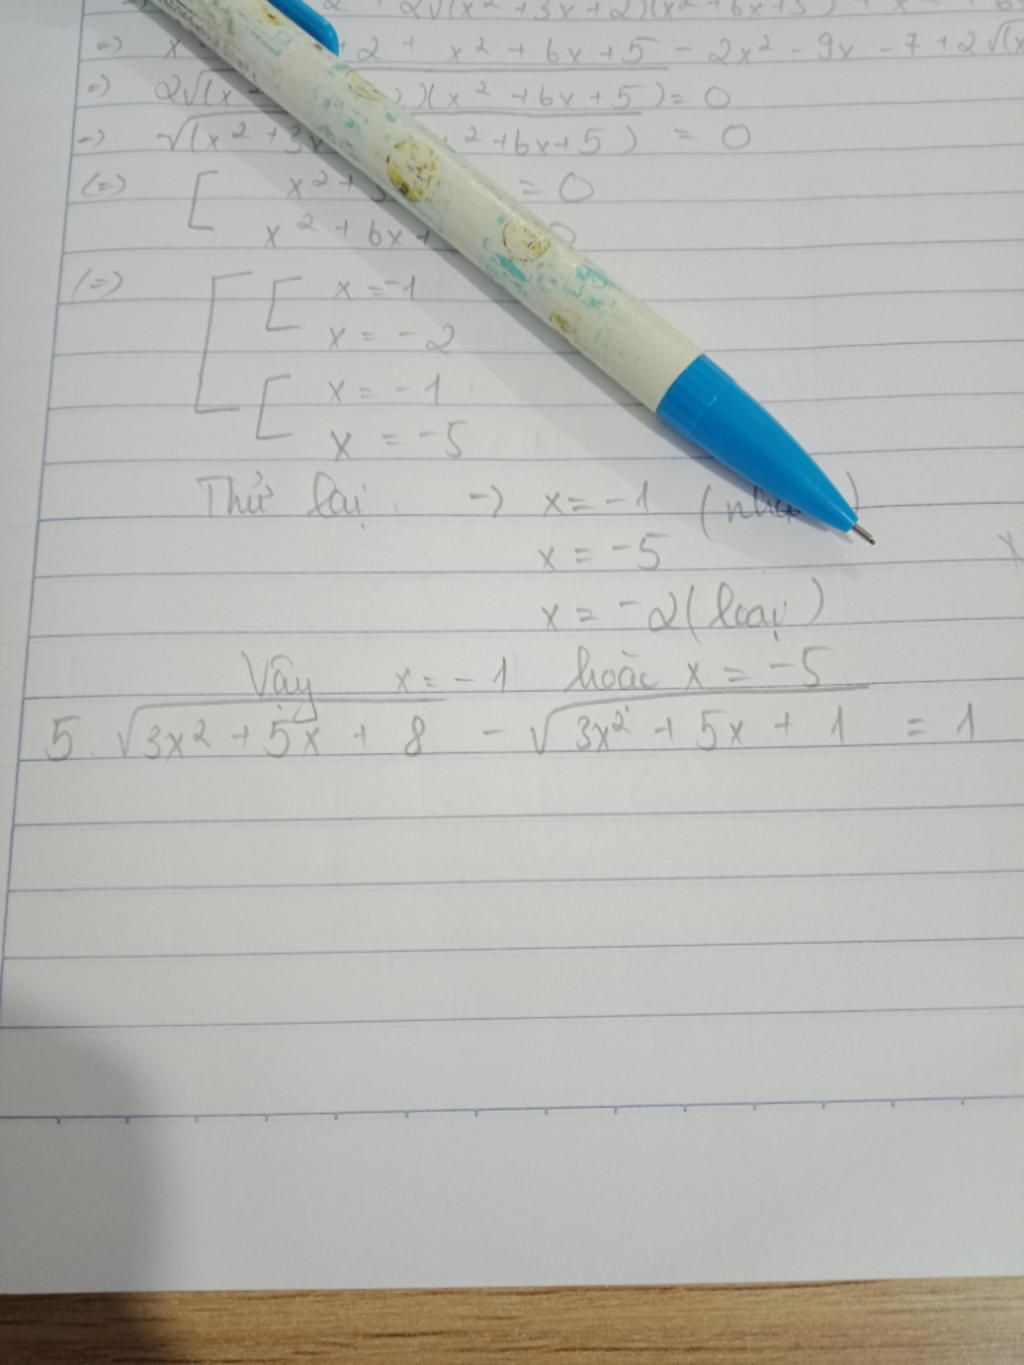 2√(x²+3x+2)(x²+6x+5)
=) x +2 + x² + 6x + 5 - 2x² - 9x - 7 + 2√(x
=) 2√(x )(x² + 6x + 5) = 0
=) √(x² + 3x x² + 6x + 5) = 0
(=) [ x² + = 0
x² + 6x +
(=) [ [ x = -1
x = -2
[ x = -1
x = -5
Thử lại -) x = -1
x = -5
x = -2 (loại)
Vậy x = -1 hoặc x = -5
5. √3x² + 5x + 8 - √3x² + 5x + 1 = 1